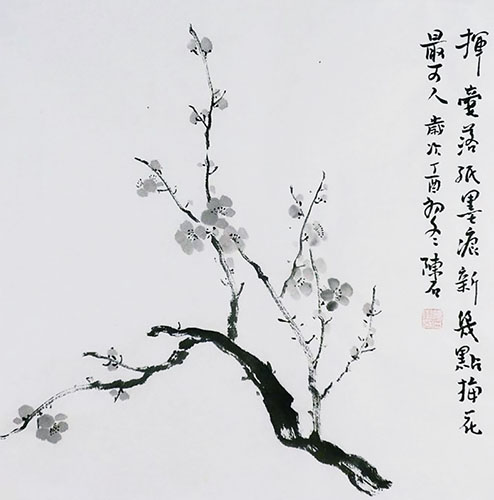 揮毫落紙墨痕新幾點梅花
最可人 歲次丁酉初冬 陳石